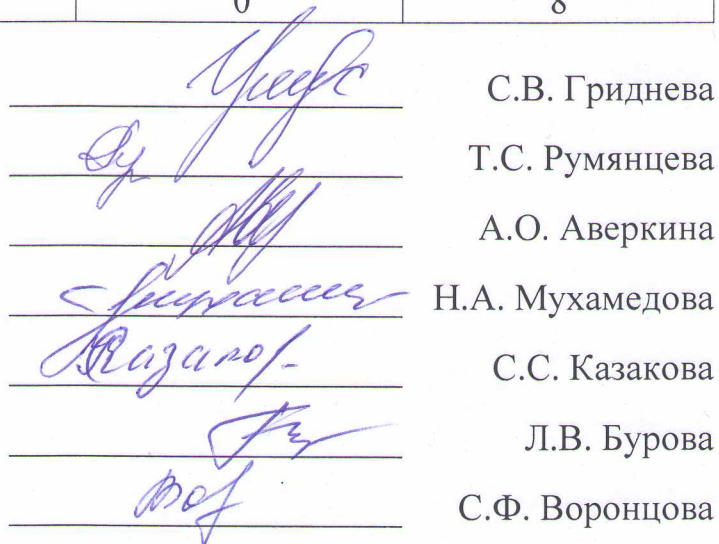 0 8
С.В. Гриднева
Т.С. Румянцева
А.О. Аверкина
Н.А. Мухамедова
Казаков С.С. Казакова
Л.В. Бурова
С.Ф. Воронцова